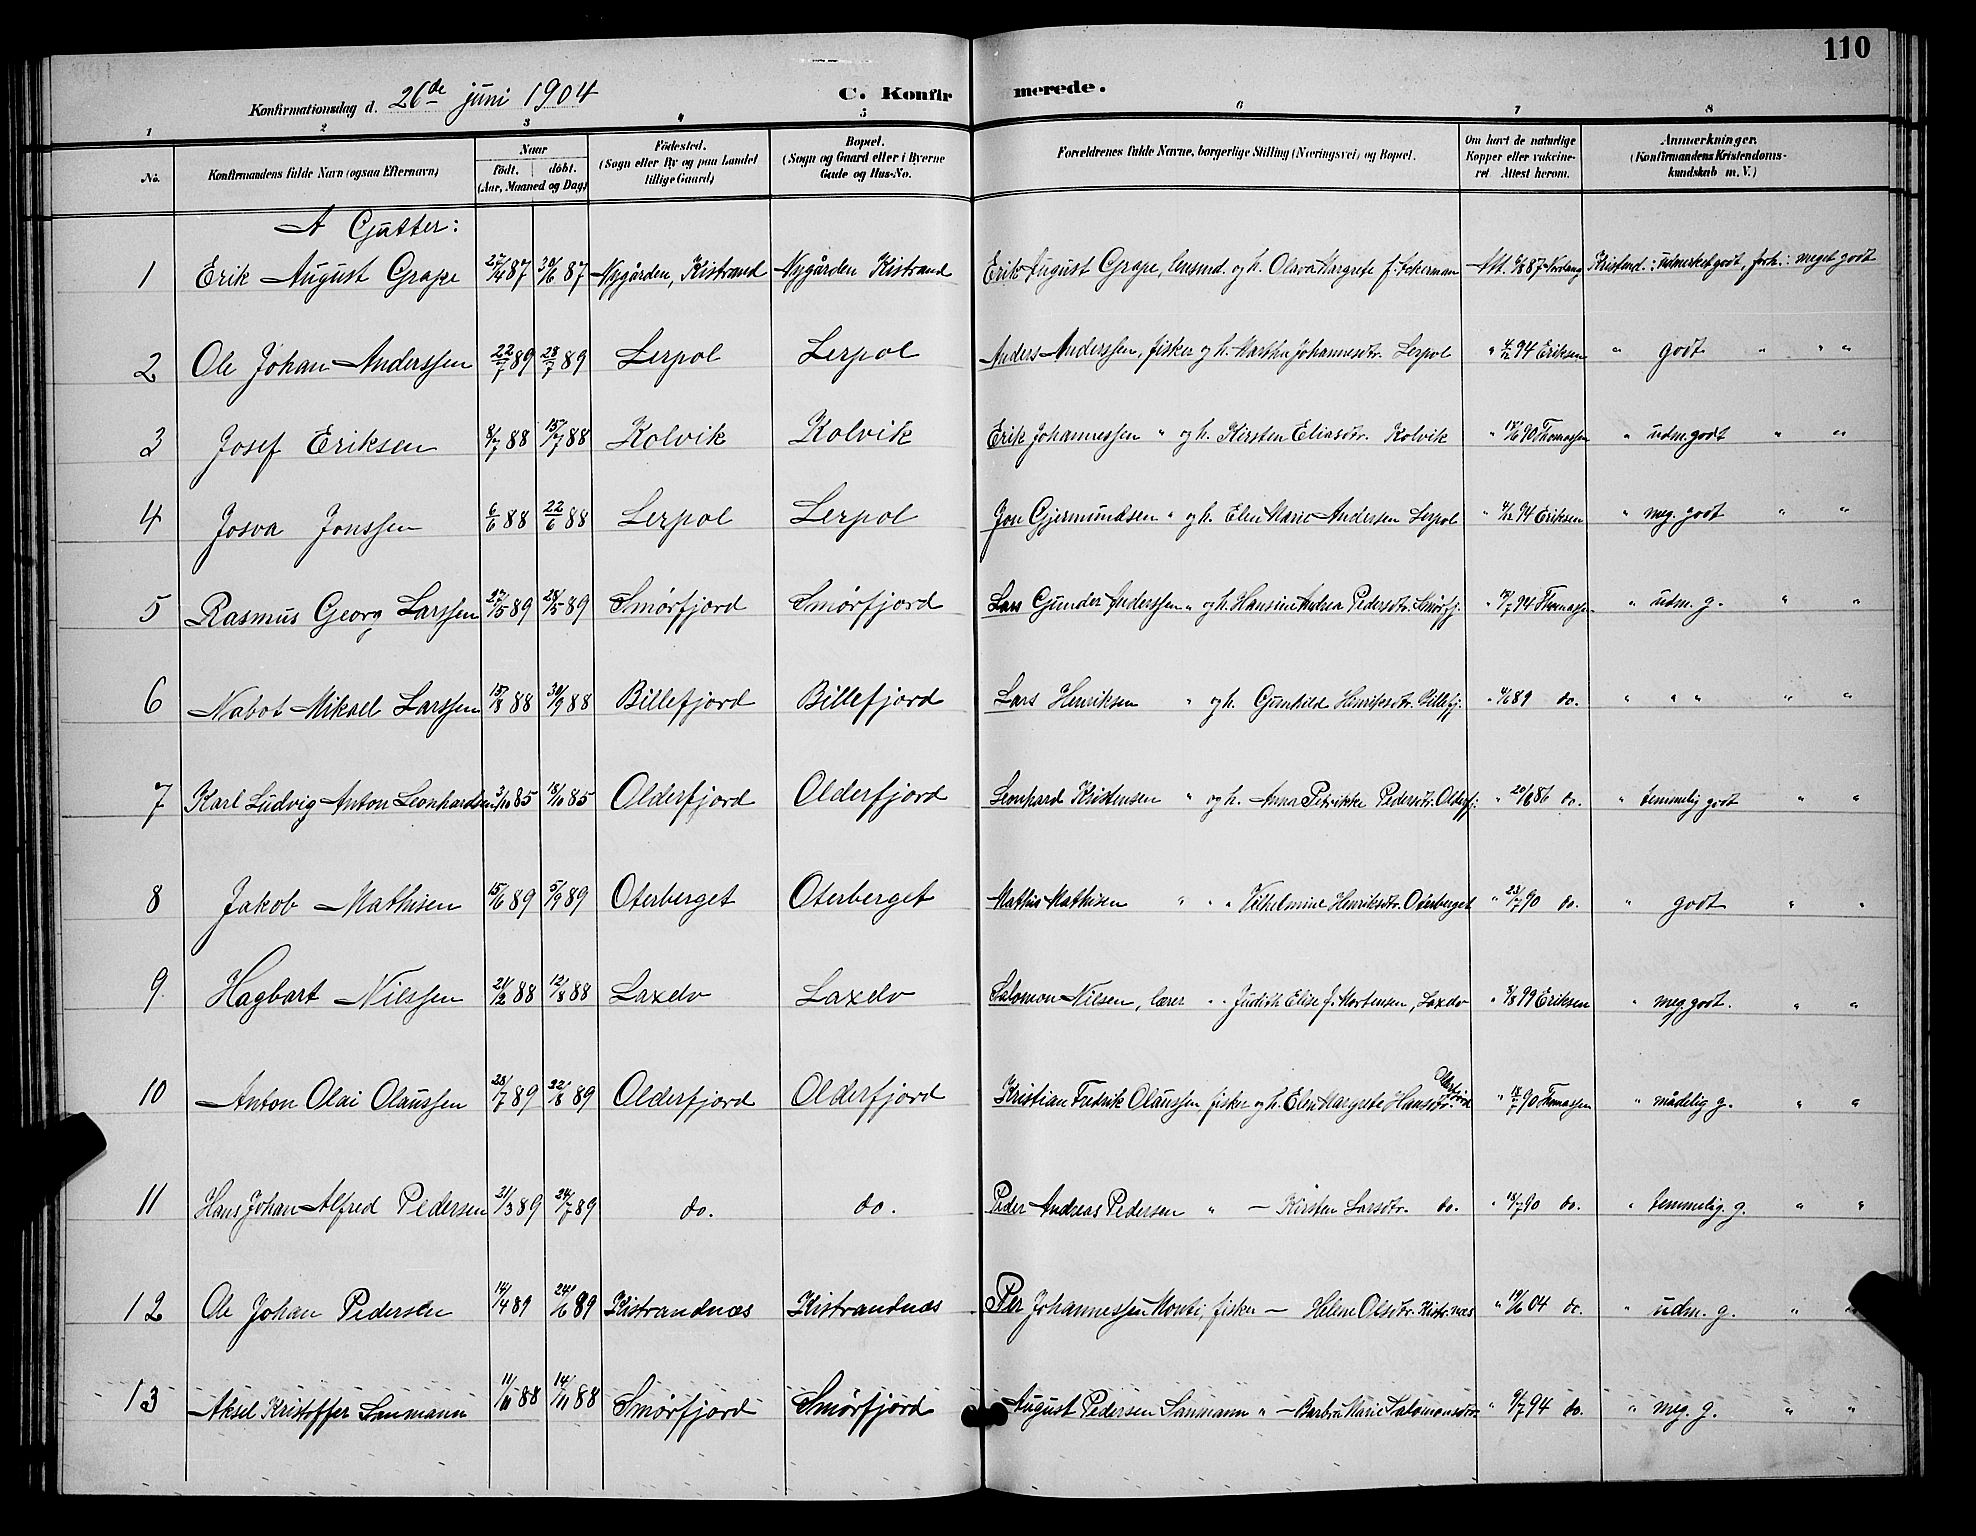 110
Konfirmationsdag d. 26de juni 1904 C. Konfirmerede.
1 2 3 4 5 6 7 8
No. Konfirmandens fulde Navn (ogsaa Efternavn) Naar født. døbt. (Aar, Maaned og Dag) Fødested. (Sogn eller By og paa Landet tillige Gaard) Bopæl. (Sogn og Gaard eller i Byerne Gade og Hus-No. Forældrenes fulde Navne, borgerlige Stilling (Næringsvei) og Bopæl. Om havt de naturlige Kopper eller vakcineret Attest herom. Anmærkninger. (Konfirmandens Kristendomskundskab m. V.)
A Gutter:
1 Erik August Grape 27/4 87 30/6 87 Nygården, Kistrand Nygården Kistrand Erik August Grape, lensmd. og h. Olava Margrete f. Ackerman Att. 87 Kristend.: udmerket godt, forh.: meget godt
2 Ole Johan Anderssen 22/7 89 28/7 89 Lerpol Lerpol Anders Anderssen, fisker og h. Martha Johannesdtr. Lerpol " 94 Eriksen " godt " " "
3 Josef Eriksen 8/7 88 15/7 88 Kolvik Kolvik Erik Johannessen " og h. Kirsten Eliasdtr. Kolvik " 90 Thomassen " udm. godt " "
4 Josva Jonssen 6/6 88 22/6 88 Lerpol Lerpol Jon Gjermundsen " og h. Elen Marie Andersen Lerpol " 94 Eriksen " meg. godt " "
5 Rasmus Georg Larssen 27/5 89 28/5 89 Smørfjord Smørfjord Lars Gunder Anderssen " og h. Hansine Andrea Pedersdtr. Smørfj. " 94 Thomassen " udm. g. " "
6 Nabot Mikael Larssen 15/8 88 30/9 88 Billefjord Billefjord Lars Henriksen " og h. Gunhild Henriksdtr. Billefj. " 89 do. " " " " "
7 Karl Ludvig Anton Leonhardsen 3/10 85 18/10 85 Olderfjord Olderfjord Leonhard Kristensen " og h. Anna Petrikke Pedersdtr. Olderfj. " 20/8 86 do. " temmelig godt " "
8 Jakob Mathisen 15/6 89 5/9 89 Oterberget Oterberget Mathis Mathisen " " " Vilhelmine Henriksdtr. Oterberget " 23/7 90 do. " godt " "
9 Hagbart Nielssen 21/2 88 12/8 88 Laxelv Laxelv Salomon Nilsen, lærer " " Judith Elise f. Mortensen, Laxelv " 8/8 99 Eriksen " meg. godt. " "
10 Anton Olai Olaussen 23/7 89 22/8 89 Olderfjord Olderfjord Kristian Fredrik Olaussen fisker og h. Elen Margrete Hansdtr. Olderfjord " 18/7 90 Thomassen " mådelig g. " "
11 Hans Johan Alfred Pedersen 21/3 89 24/7 89 do. do. Peder Andreas Pedersen " — Kirsten Larsdtr. do. " 18/7 90 do. " temmelig. g. " "
12 Ole Johan Pedersen 14/4 89 24/6 89 Kistrandnæs Kistrandnæs Per Johannessen Monti, fisker — Helene Olsdtr. Kistr.næs " 19/6 04 do. " udm. g. " "
13 Aksel Kristoffer Sanmann 11/10 88 14/11 88 Smørfjord Smørfjord August Pedersen Sanmann " — Barbra Marie Salomonsdtr. " 9/7 94 do. " meg. g. " "